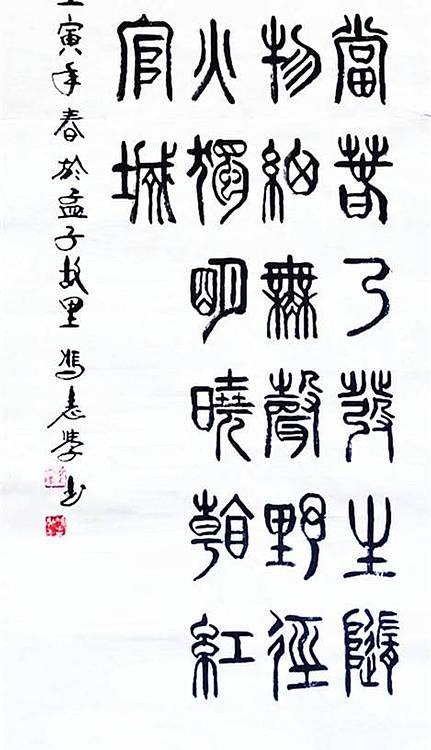 當春乃發生隨
物細無聲野徑
火獨明曉看紅
官城
寅年春於孟子故里 馮志學書